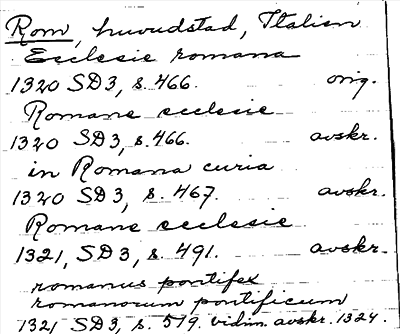 Rom, huvudstad, Italien
Ecclesie romana
1320 SD3, s. 466. orig.
Romane ecclesie
1320 SD3, s. 466. avskr.
in Romana curia
1320 SD3, s. 467. avskr.
Romane ecclesie
1321, SD3, s. 491. avskr.
romanus pontifex
romanorum pontificum
1321 SD3, s. 519. vidim. avskr. 1324.